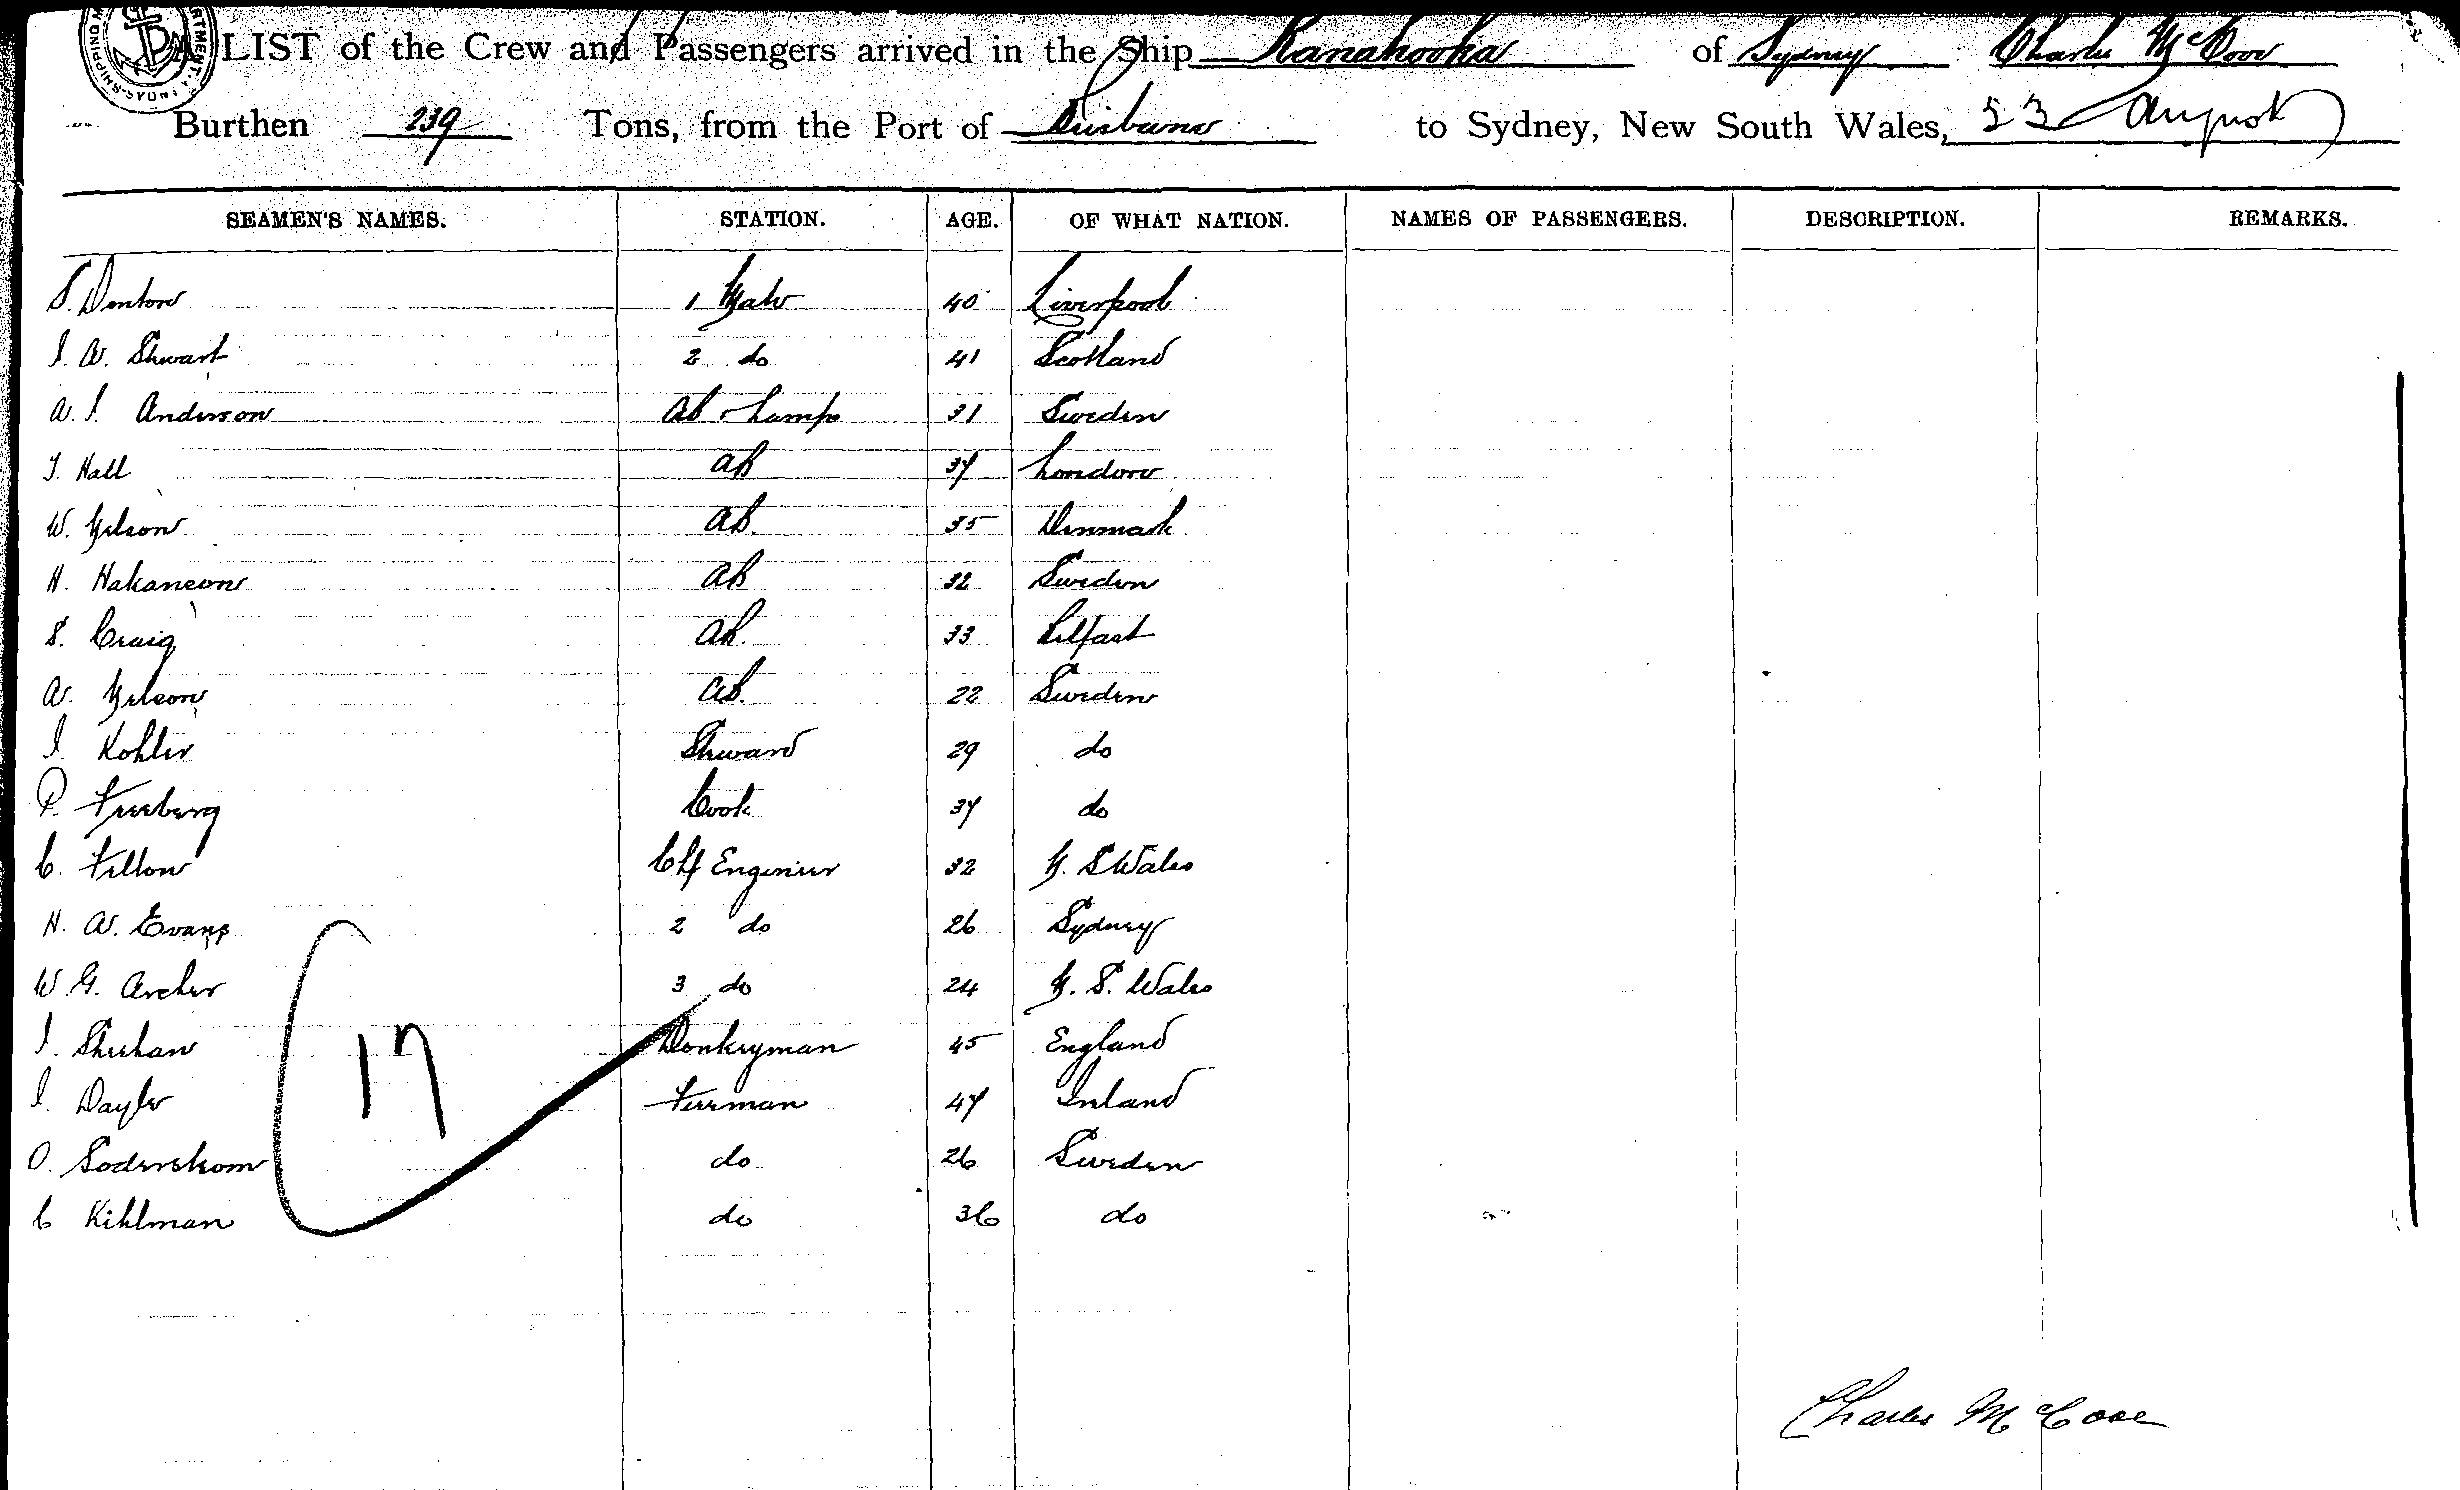 A LIST of the Crew and Passengers arrived in the Ship Kanahooka of Sydney Charles McCool
Burthen 239 Tons, from the Port of Brisbane to Sydney, New South Wales, 23 August
SEAMEN'S NAMES. STATION. AGE. OF WHAT NATION. NAMES OF PASSENGERS. DESCRIPTION. REMARKS.
S. Denton 1 Mate 40 Liverpool
J. A. Stewart 2 do 41 Scotland
A. J. Anderson AB & Lamps 31 Sweden
J. Hall AB 37 London
W. Nelson AB 35 Denmark
H. Hakanson AB 32 Sweden
S. Craig AB 33 Belfast
A. Nelson AB 22 Sweden
J. Kohler Steward 29 do
P. Freeberg Cook 37 do
C. Felton Chf Engineer 32 N. S Wales
H. A. Evans 2 do 26 Sydney
W. G. Archer 3 do 24 N. S. Wales
J. Sheehan Donkeyman 45 England
17
J. Fireman 47 Ireland
O. Soderstrom do 26 Sweden
C Kihlman do 36 do
Charles McCool